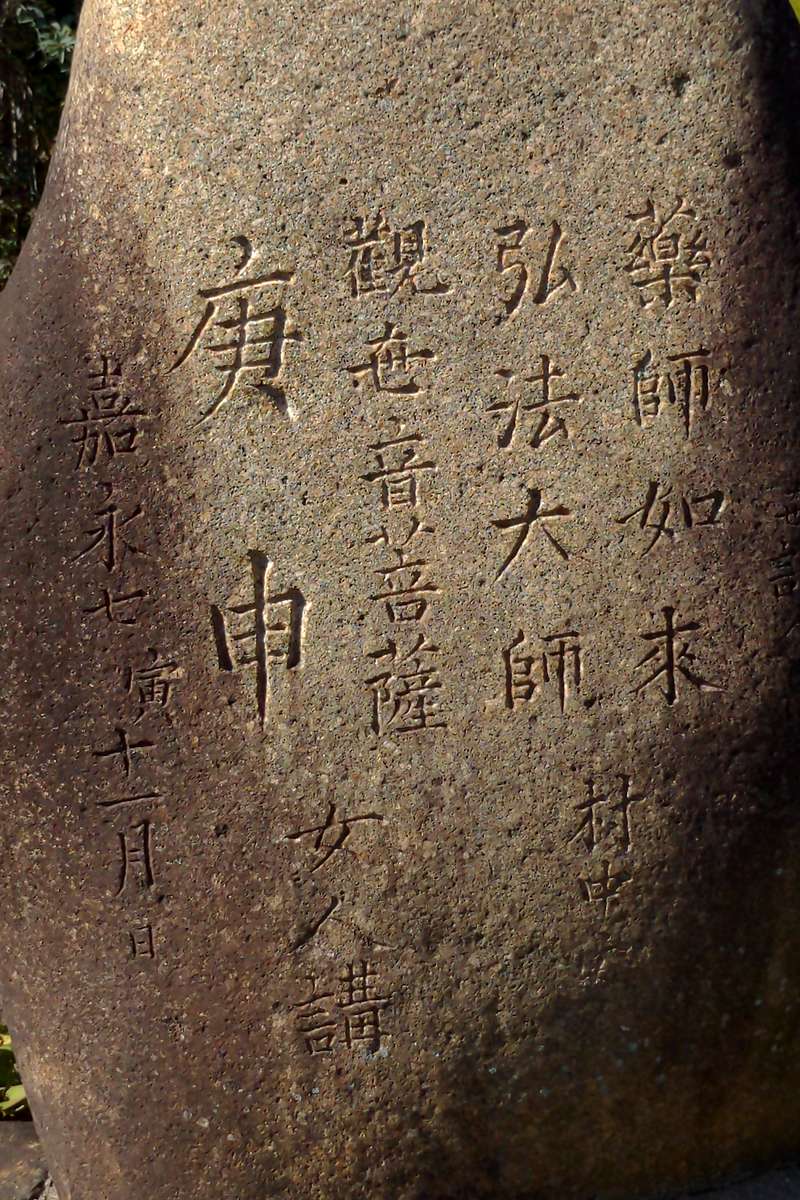 世話人
藥師如來
弘法大師
村中
觀世音菩薩
女人講
庚申
嘉永七寅十一月日